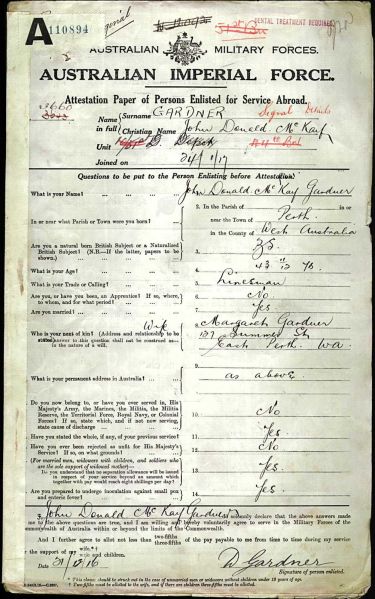 A 110894
DENTAL TREATMENT REQUIRED
AUSTRALIAN MILITARY FORCES.
AUSTRALIAN IMPERIAL FORCE.
Attestation Paper of Persons Enlisted for Service Abroad.
Name in full
Surname GARDNER
Christian Name John Donald McKay
Signal Details
Unit D. Depot
Joined on 24/1/17
Questions to be put to the Person Enlisting before Attestation.
What is your Name? John Donald McKay Gardner
In or near what Parish or Town were you born? 2. In the Parish of in or near the Town of Perth.
in the County of West Australia
Are you a natural born British Subject or a Naturalized British Subject? (N.B.—If the latter, papers to be shown). 3.
What is your Age? 4. 43
What is your Trade or Calling? 5. Linesman
Are you, or have you been, an Apprentice? If so, where, to whom, and for what period? 6. No
Are you married? 7. Yes
Who is your next of kin? (Address and relationship to be stated; answer to this question shall not be construed as in the nature of a will. Wife 8. Margaret Gardner
East Perth. WA.
What is your permanent address in Australia? 9. as above.
Do you now belong to, or have you ever served in, His Majesty's Army, the Marines, the Militia, the Militia Reserve, the Territorial Force, Royal Navy, or Colonial Forces? If so, state which, and if not now serving, state cause of discharge 10. No
Have you stated the whole, if any, of your previous service? 11. Yes.
Have you ever been rejected as unfit for His Majesty's Service? If so, on what grounds? 12. No
(For married men, widowers with children, and soldiers who are the sole support of widowed mother)—
Do you understand that no separation allowance will be issued in respect of your service beyond an amount which together with pay would reach eight shillings per day? 13. Yes.
Are you prepared to undergo inoculation against small pox and enteric fever? 14. Yes.
I, John Donald McKay Gardner do solemnly declare that the above answers made
me to the above questions are true, and I am willing and hereby voluntarily agree to serve in the Military Forces of the
Commonwealth of Australia within or beyond the limits of the Commonwealth.
And I further agree to allot not less than two-fifths three-fifths of the pay payable to me from time to time during my service
the support of my wife.*† wife and children.
Date 31/12/16
D Gardner
Signature of person enlisted.
* This clause should be struck out in the case of unmarried men or widowers without children under 18 years of age.